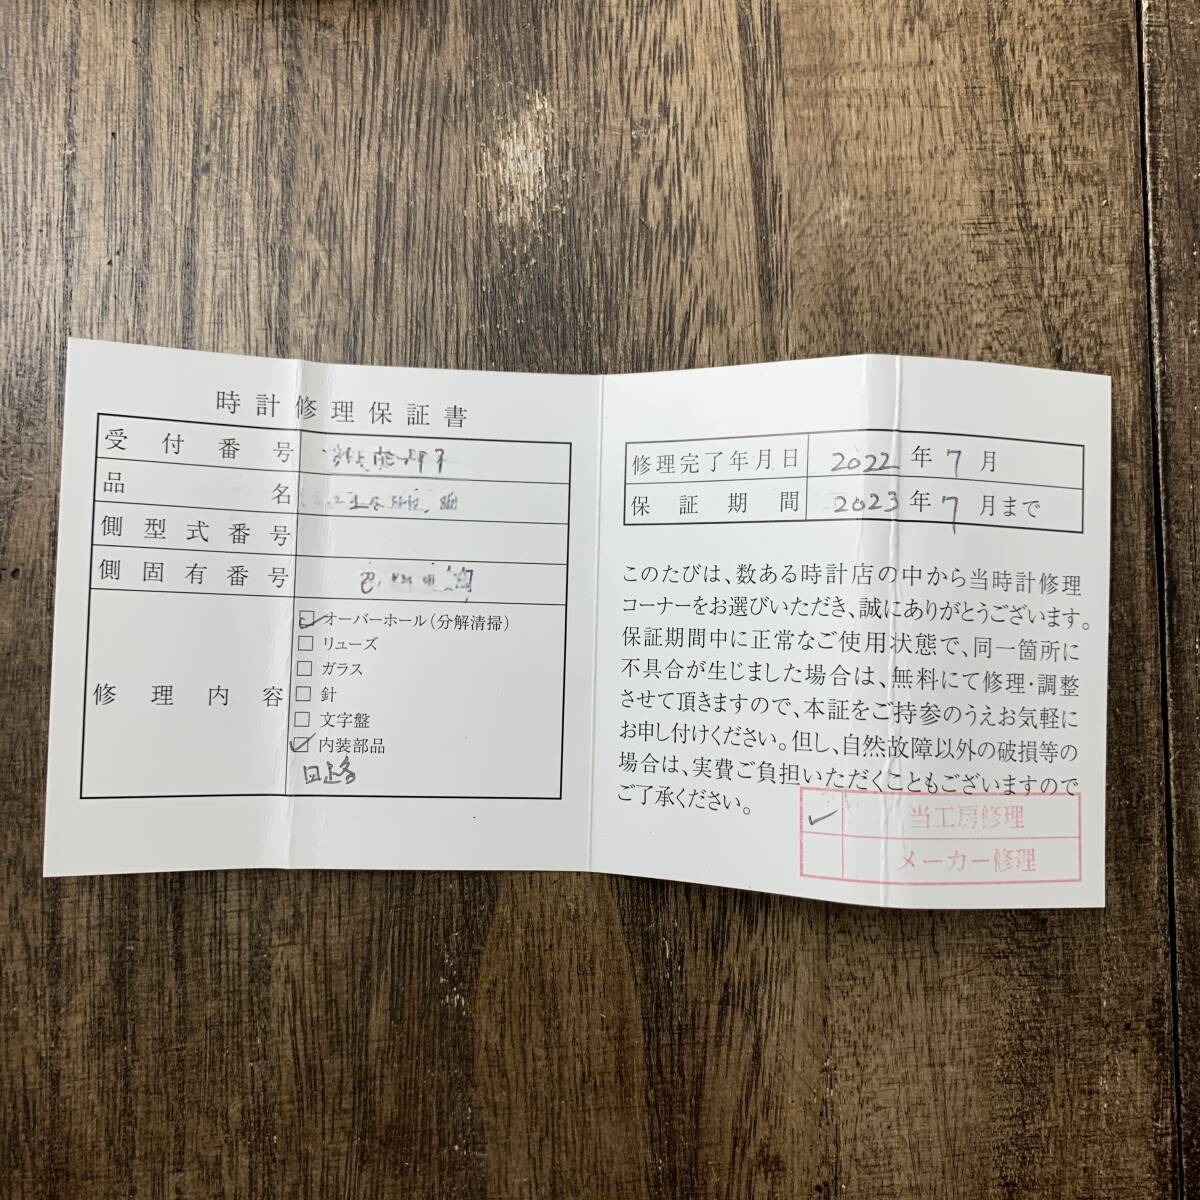 時計修理保証書
受付番号
品名
側型式番号
側固有番号
修理内容
オーバーホール(分解清掃)
リューズ
ガラス
針
文字盤
内装部品
回路
修理完了年月日 2022年7月
保証期間 2023年7月まで
このたびは、数ある時計店の中から当時計修理
コーナーをお選びいただき、誠にありがとうございます。
保証期間中に正常なご使用状態で、同一箇所に
不具合が生じました場合は、無料にて修理・調整
させて頂きますので、本証をご持参のうえお気軽に
お申し付けください。但し、自然故障以外の破損等の
場合は、実費ご負担いただくこともございますので
ご了承ください。
当工房修理
メーカー修理